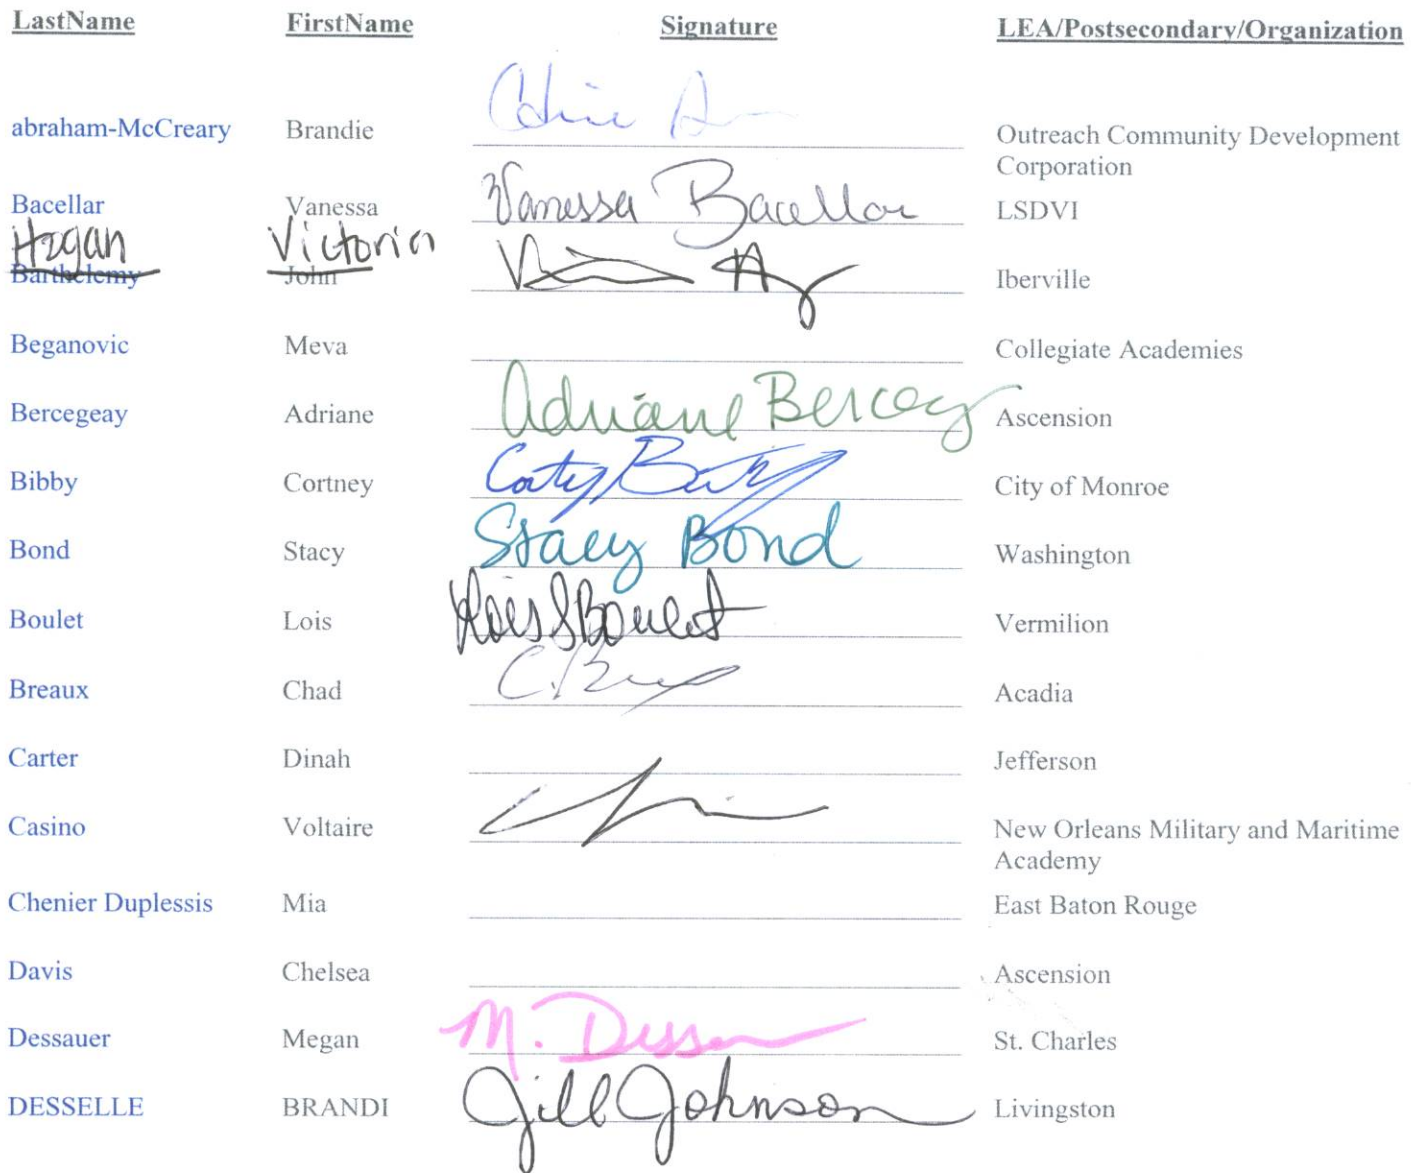 LastName FirstName Signature LEA/Postsecondary/Organization
abraham-McCreary Brandie Outreach Community Development
Corporation
Bacellar Vanessa Vanessa Bacellar LSDVI
Hogan Victoria
Barthelemy John Iberville
Beganovic Meva Collegiate Academies
Bercegeay Adriane Adriane Bercegeay Ascension
Bibby Cortney City of Monroe
Bond Stacy Stacy Bond Washington
Boulet Lois Lois S Boulet Vermilion
Breaux Chad Acadia
Carter Dinah Jefferson
Casino Voltaire New Orleans Military and Maritime
Academy
Chenier Duplessis Mia East Baton Rouge
Davis Chelsea Ascension
Dessauer Megan M. St. Charles
DESSELLE BRANDI Jill Johnson Livingston